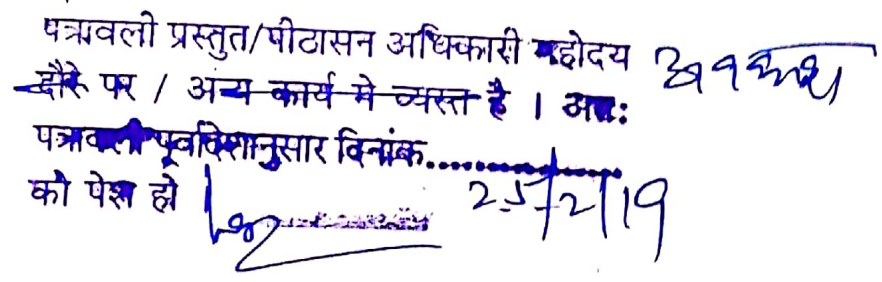 पत्रावली प्रस्तुत/पीठासन अधिकारी महोदय अवकाश
दौरे पर / अन्य कार्य मे व्यस्त है । अतः
पत्रावली पूर्वादेशानुसार दिनांक..................
को पेश हो 25/2/19